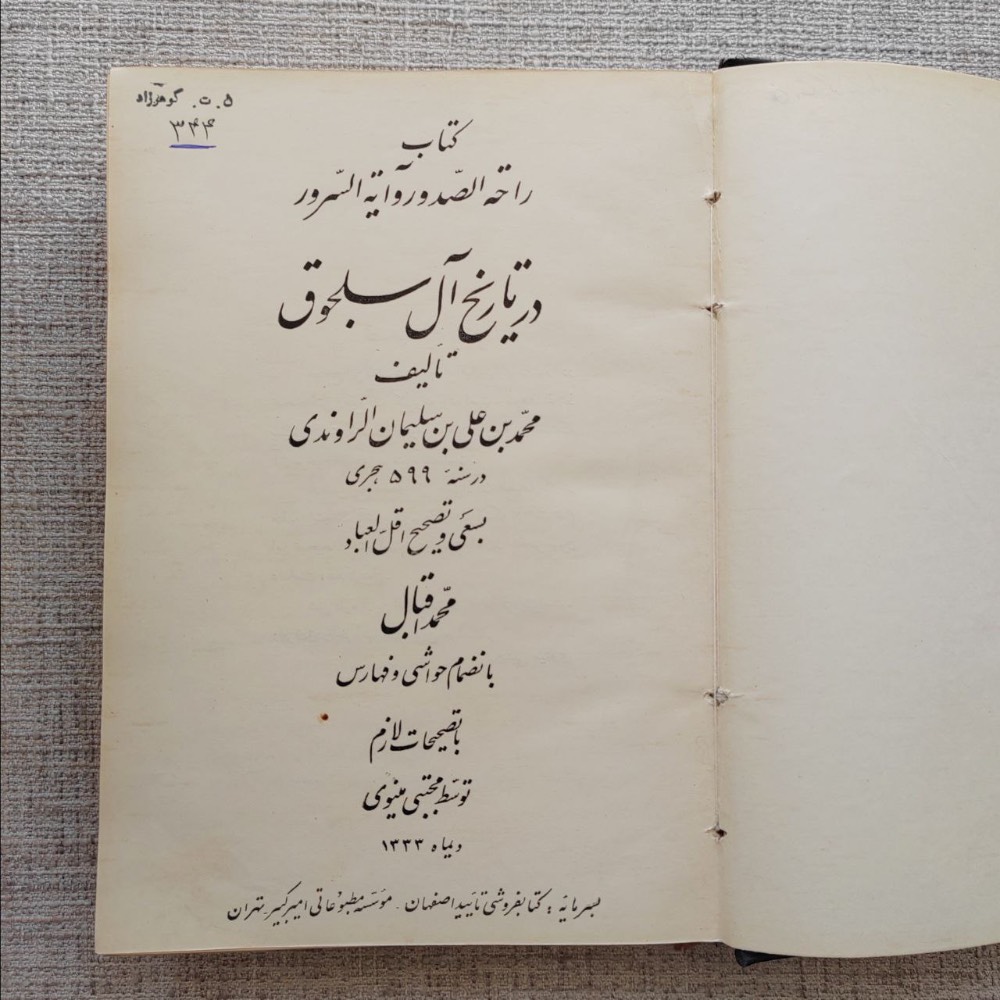 ه. ت. گوهرزاد
۳۴۴
کتاب
راحة الصّدور وآیة السّرور
در تاریخ آل سلجوق
تألیف
محمّد بن علی بن سلیمان الرّاوندی
در سنهٔ ۵۹۹ هجری
بسعی و تصحیح اقلّ العباد
محمّد اقبال
بانضمام حواشی و فهارس
با تصحیحات لازم
توسّط مجتبی مینوی
دیماه ۱۳۳۳
بسرمایهٔ : کتابفروشی تأیید اصفهان - مؤسّسه مطبوعاتی امیر کبیر تهران